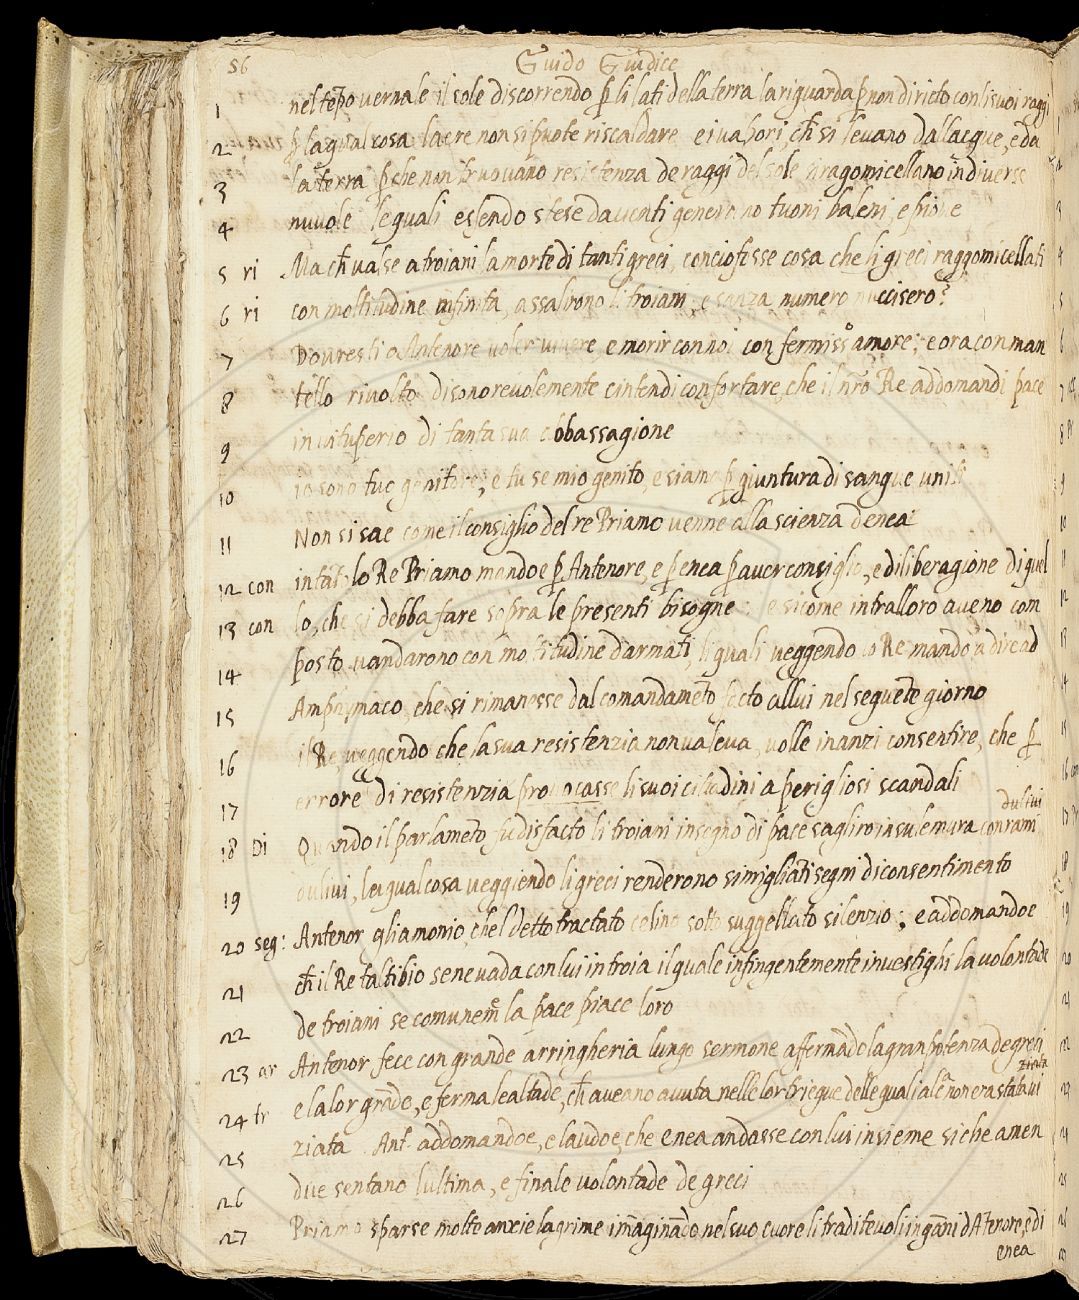 56 Guido Giudice
1 nel tẽpo vernale il sole discorrendo p̱ li lati della terra la riguarda p̱ non diricto con li suoi raggi
2 p̱ la qual cosa laere non si puote riscaldare e i vapori, ch̃ si levano dallacque, e da
3 la terra p̱che non truovano resistenza de raggi del sole si ragomicellano in diverse
4 nuvole le quali essendo stese da venti generano tuoni baleni, e piove
5 ri Ma ch̃ valse a troiani la morte di tanti greci, conciofisse cosa che li greci raggomicellati
6 ri con moltitudine infinita, assalirono li troiani, e sanza numero nuccisero?
7 Dovresti o Antenore voler vivere, e morir con noi con fermissº amore; e ora con man
8 tello rivolto disonorevolemente cintendi confortare, che il nr̃o Re addomandi pace
9 in vituperio di tanta sua abbassagione
10 io sono tuo genitore, e tu se mio genito, e siamo p̱ giuntura di sangue uniti
11 Non si sae come il consiglio del re Priamo venne alla scienza denea
12 con lo Re Priamo mandoe p̱ Antenore, e p̱ enea p̱ aver consiglio, e diliberagione di quel
13 con lo, che si debba fare sopra le presenti bisogne: e sicome intralloro aveno com
14 posto vandarono con moltitudine darmati, li quali veggendo lo Re mando a dire ad
15 Amphimaco, che si rimanesse dal comandamẽto facto allui nel seguẽte giorno
16 il Re veggendo che la sua resistenzia non valeva, volle inanzi consentire, che p̱
17 errore di resistenzia provocasse li suoi cittadini a perigliosi scandali
18 Di Quando il parlamẽto fu disfacto li troiani insegno di pace sagliro in su le mura con rami
dulivi
19 oulivi, la qual cosa veggiendo li greci renderono simigliãti segni di consentimento
20 seg: Antenor gliamonio, chel detto tractato celino sotto suggellato silenzio; e addomandoe
21 ch̃ il Re taltibio se ne vada con lui in troia il quale infingentemente investighi la volontade
22 de troiani se comunemẽ la pace piace loro
23 ar Antenor fece con grande arringheria lungo sermone affermãdo la gran potenza de greci
24 tr e la lor grãde, e ferma lealtade, ch̃ aveano avuta nelle lor triegue delle quali alc̃ non era stata vi
ziata
25 ziata Antº addomandoe, e laudoe, che enea andasse con lui insieme siche amen
26 due sentano lultima, e finale volontade de greci
27 Priamo sparse molte anxie lagrime imaginãdo nel suo cuore li traditevoli ingãni dAtenore, e di
enea